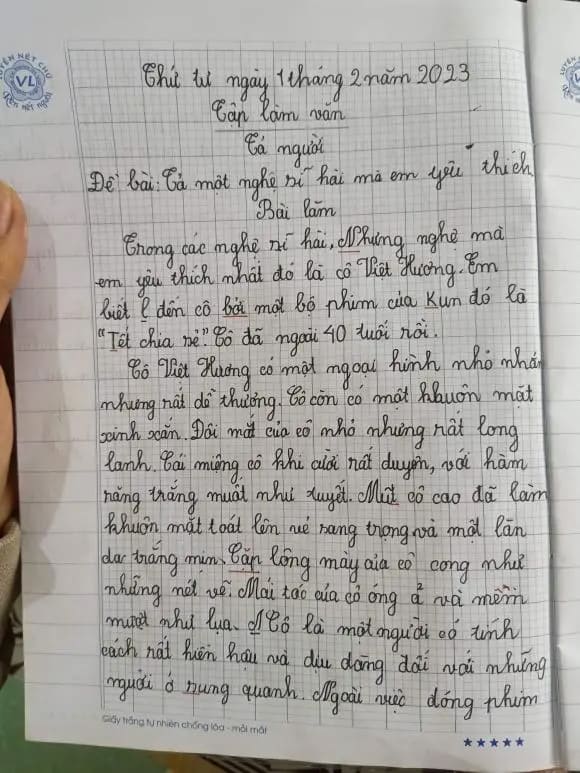 LUYỆN NÉT CHỮ
VL
RÈN NẾT NGƯỜI
Thứ tư ngày 1 tháng 2 năm 2023
Tập làm văn
Tả người
Đề bài: Tả một nghệ sĩ hài mà em yêu thích
Bài làm
Trong các nghệ sĩ hài, Nhưng nghệ mà
em yêu thích nhất đó là cô Việt Hương. Em
biết l đến cô bởi một bộ phim của Kun đó là
"Tết chia sẻ". Cô đã ngoài 40 tuổi rồi.
Cô Việt Hương có một ngoại hình nhỏ nhắn
nhưng rất dễ thương. Cô còn có một khuôn mặt
xinh xắn. Đôi mắt của cô nhỏ nhưng rất long
lanh. Cái miệng cô khi cười rất duyên, với hàm
răng trắng muốt như tuyết. Mũi cô cao đã làm
khuôn mặt toát lên vẻ sang trọng và một làn
da trắng mịn. Cặp lông mày của cô cong như
những nét vẽ. Mái tóc của cô óng ả và mềm
mượt như lụa. Cô là một người có tính
cách rất hiền hậu và dịu dàng đối với những
người ở xung quanh. Ngoài việc đóng phim
Giấy trắng tự nhiên chống lóa - mỏi mắt